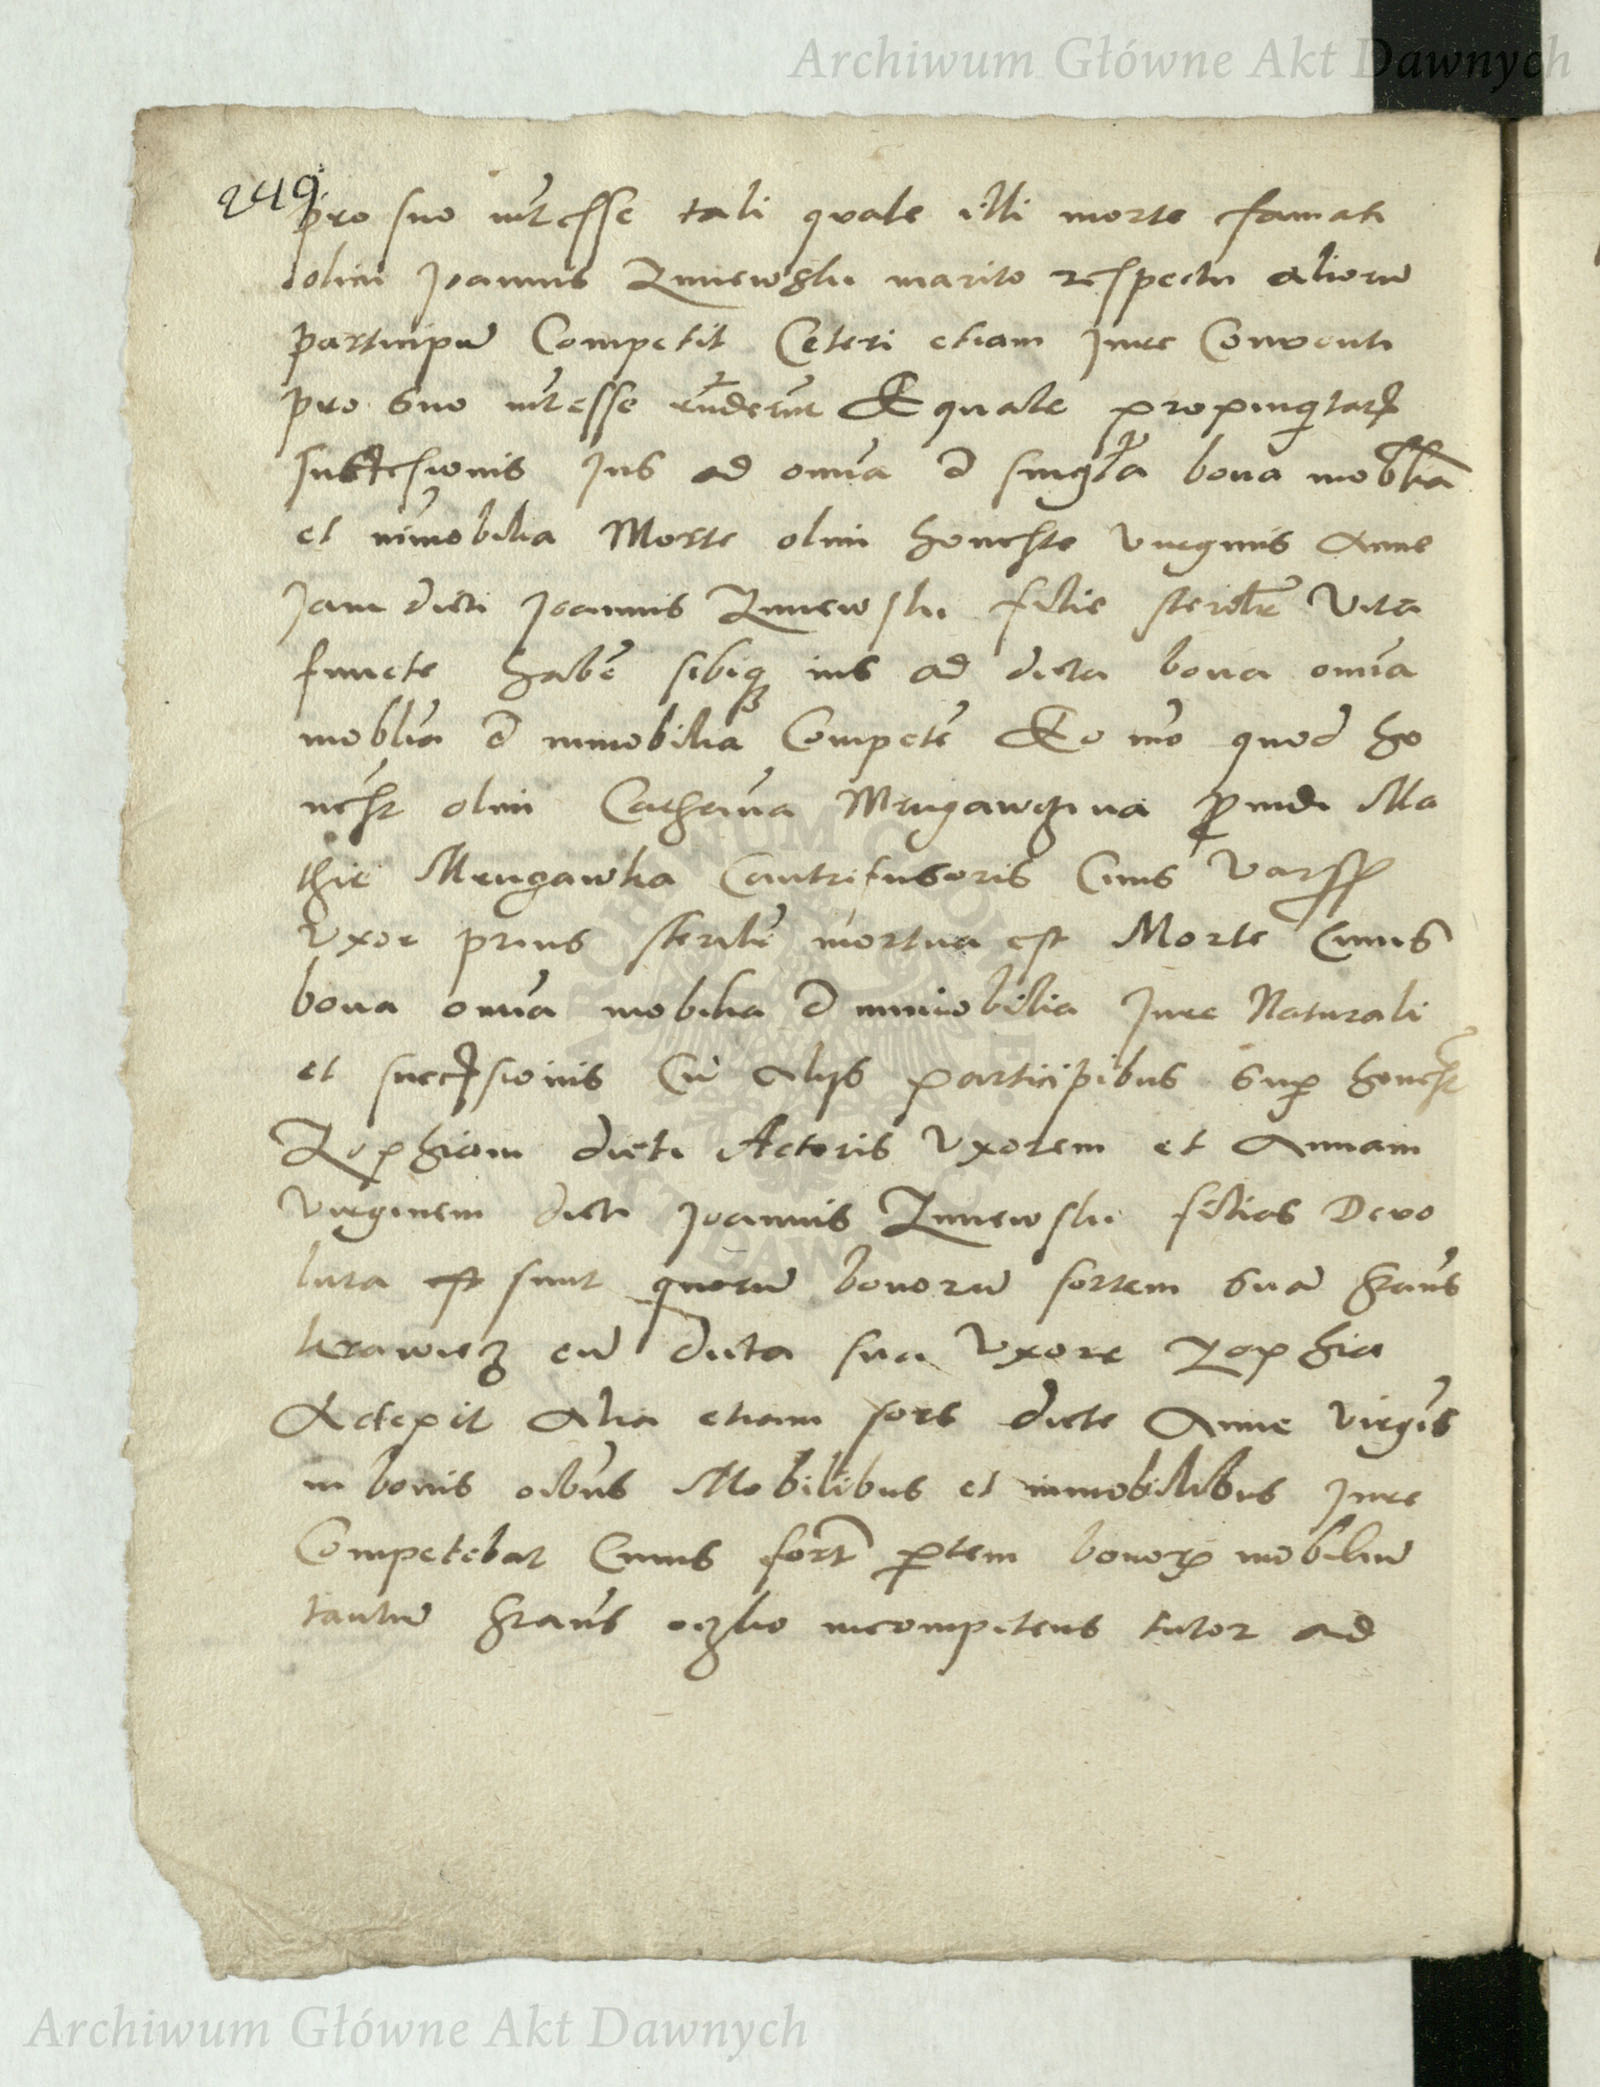 Archiwum Główne Akt Dawnych
249
pro suo int̄esse tali quale illi morte famati
olim Joannis Zniewski marito respectu aliorū
participū Competit Ceteri etiam Jure Conventi
pro suo int̄esse rn̄derūt Equale propinq̄tatis
successionis Jus ad omīa et singl̄a bona mobīlia
et īmobilia Morte olim honeste virginis Anne
Jam dicti Joannis Zniewski filie sterilit̄ vita
functe haben̄ sibiq; ius ad dicta bona omīa
mobīlia et immobilia Competen̄ Eo mō quod ho
nesta olim Catherīna Mrugawczina providi Ma
thie Mrugawka Cantrifusoris Civis Varssch
Vxor prius sterilit̄ mortua est Morte Cuius
bona omīa mobilia et immobilia Jure Naturali
et successionis Cū Alijs participibus sup honest
Zophiam dicti Actoris Vxorem et Annam
virginem dicti Joannis Zniewski filias Devo
luta est sunt quorū bonorū sortem suā Stanīs
krawiecz cū dicta sua Vxore Zophia
Accepit Alia etiam sors dicte Anne virgīs
in bonis oībus Mobilibus et immobilibus Jure
Competebat Cuius sort̄ ptem bonorū mobiliū
tantū Stanīs oczko incompetens tutor ad
Archiwum Główne Akt Dawnych